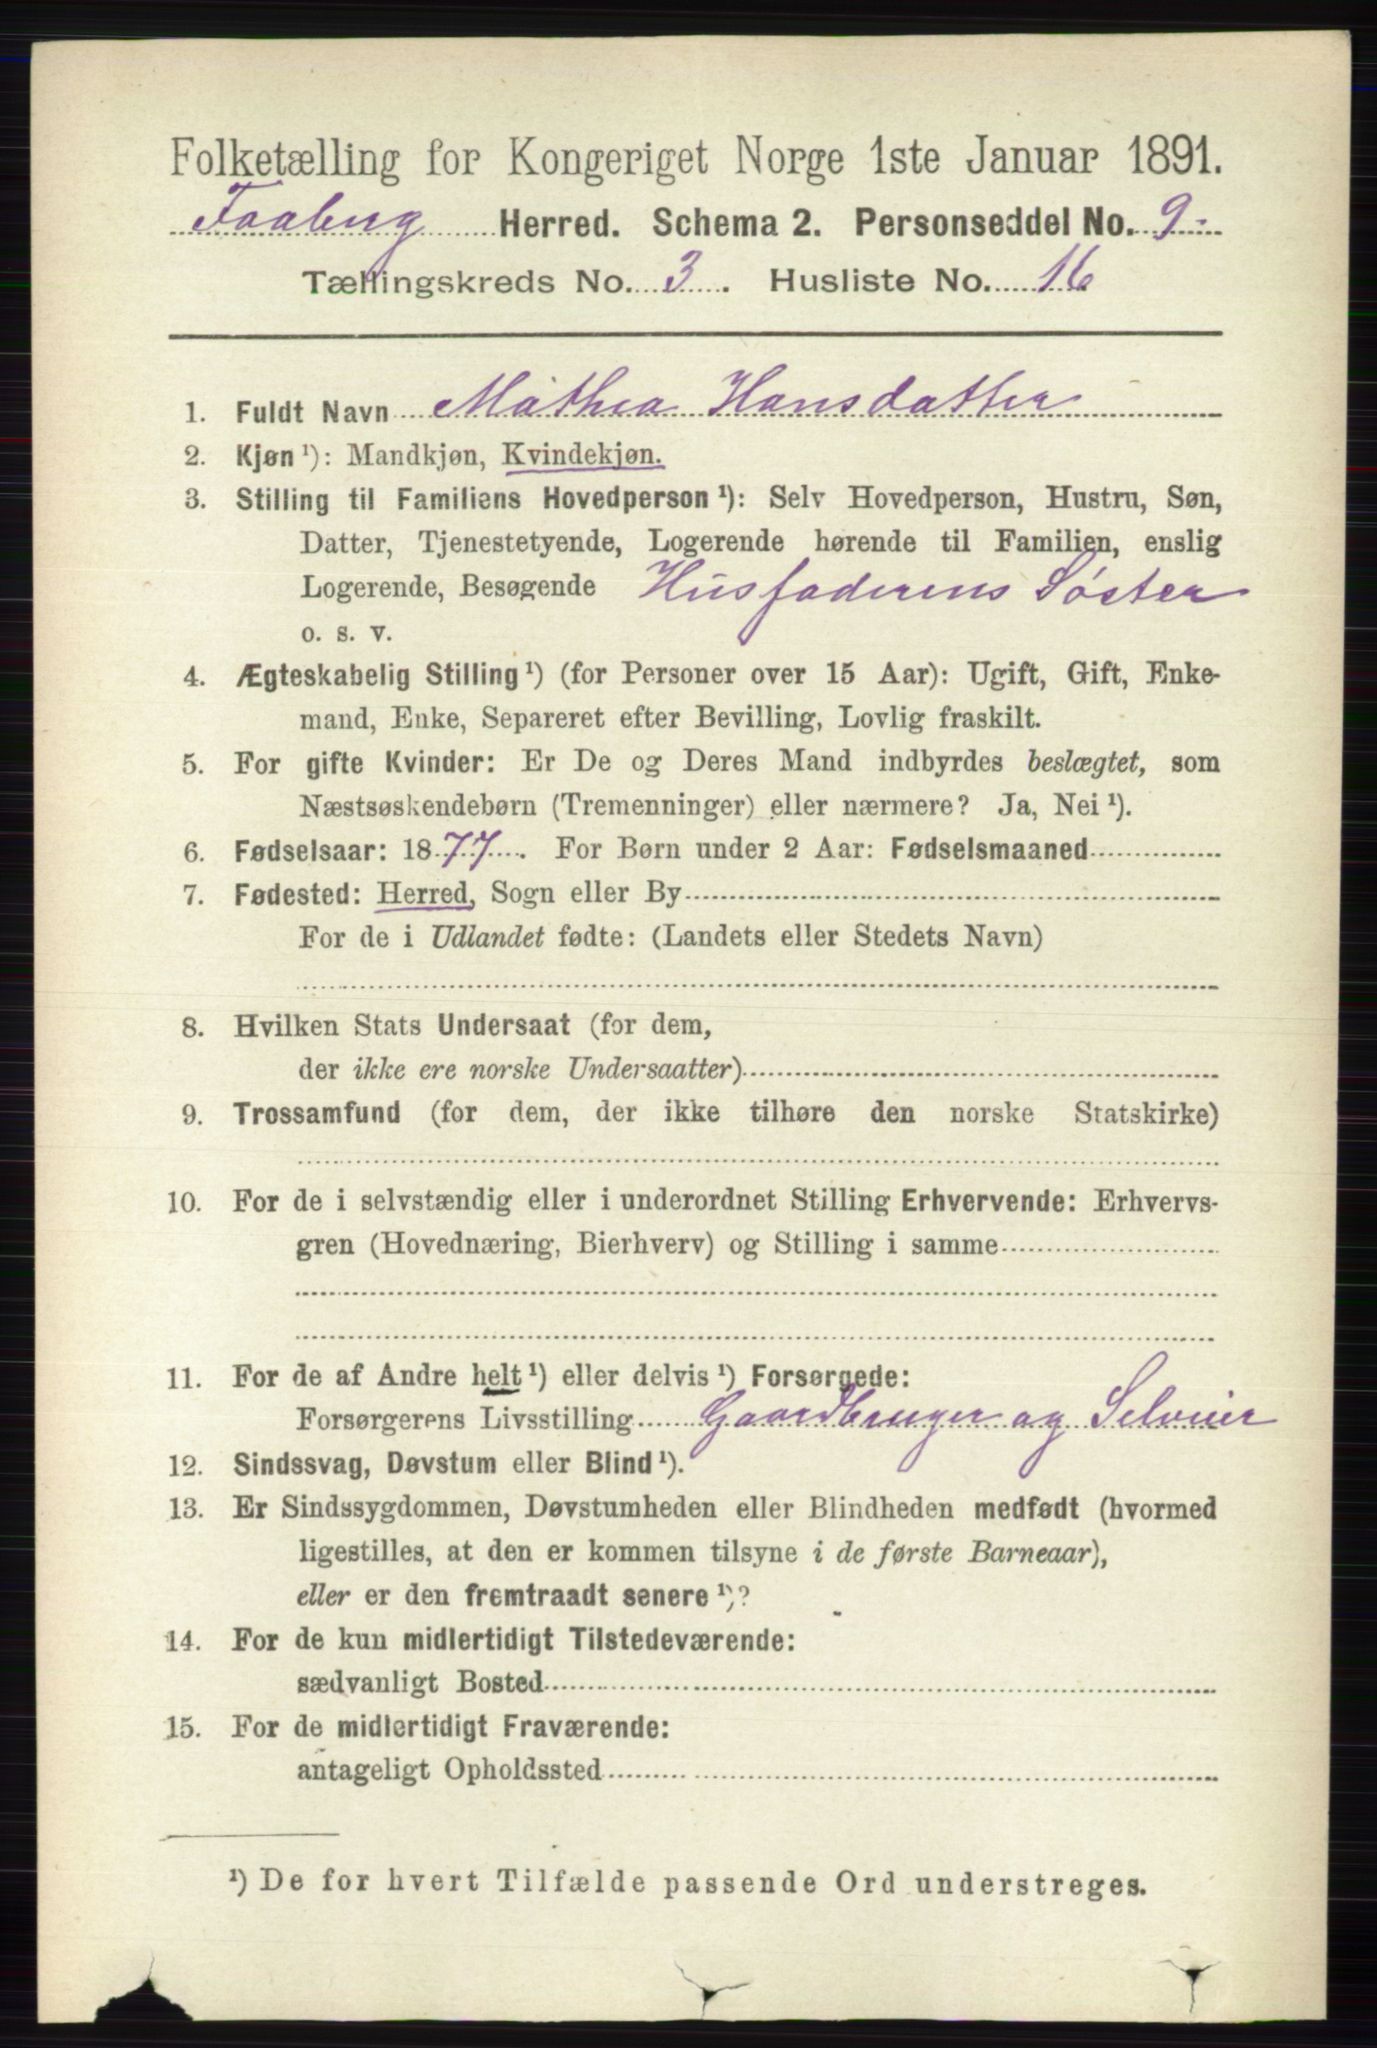 Folketælling for Kongeriget Norge 1ste Januar 1891.
Faaberg Herred. Schema 2. Personseddel No. 9-
Tællingskreds No. 3. Husliste No. 16
1. Fuldt Navn Mathea Hansdatter
2. Kjøn ¹): Mandkjøn, Kvindekjøn.
3. Stilling til Familiens Hovedperson ¹): Selv Hovedperson, Hustru, Søn,
Datter, Tjenestetyende, Logerende hørende til Familien, enslig
Logerende, Besøgende Husfaderens Søster
o. s. v.
4. Ægteskabelig Stilling ¹) (for Personer over 15 Aar): Ugift, Gift, Enke-
mand, Enke, Separeret efter Bevilling, Lovlig fraskilt.
5. For gifte Kvinder: Er De og Deres Mand indbyrdes beslægtet, som
Næstsøskendebørn (Tremenninger) eller nærmere? Ja, Nei ¹).
6. Fødselsaar: 1877. For Børn under 2 Aar: Fødselsmaaned
7. Fødested: Herred, Sogn eller By
For de i Udlandet fødte: (Landets eller Stedets Navn)
8. Hvilken Stats Undersaat (for dem,
der ikke ere norske Undersaatter)
9. Trossamfund (for dem, der ikke tilhøre den norske Statskirke)
10. For de i selvstændig eller i underordnet Stilling Erhvervende: Erhvervs-
gren (Hovednæring, Bierhverv) og Stilling i samme
11. For de af Andre helt ¹) eller delvis ¹) Forsørgede:
Forsørgerens Livsstilling Gaardbruger og Selveier
12. Sindssvag, Døvstum eller Blind ¹).
13. Er Sindssygdommen, Døvstumheden eller Blindheden medfødt (hvormed
ligestilles, at den er kommen tilsyne i de første Barneaar),
eller er den fremtraadt senere ¹)?
14. For de kun midlertidigt Tilstedeværende:
sædvanligt Bosted
15. For de midlertidigt Fraværende:
antageligt Opholdssted
¹) De for hvert Tilfælde passende Ord understreges.